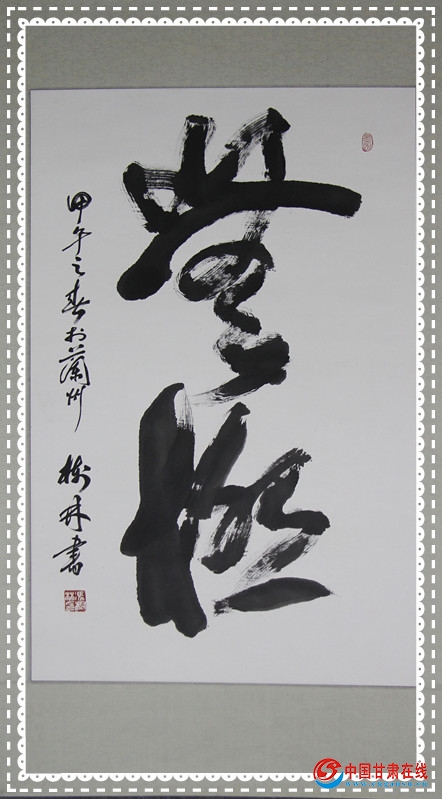 無極
甲午之春於蘭州 樹林書
中国甘肃在线